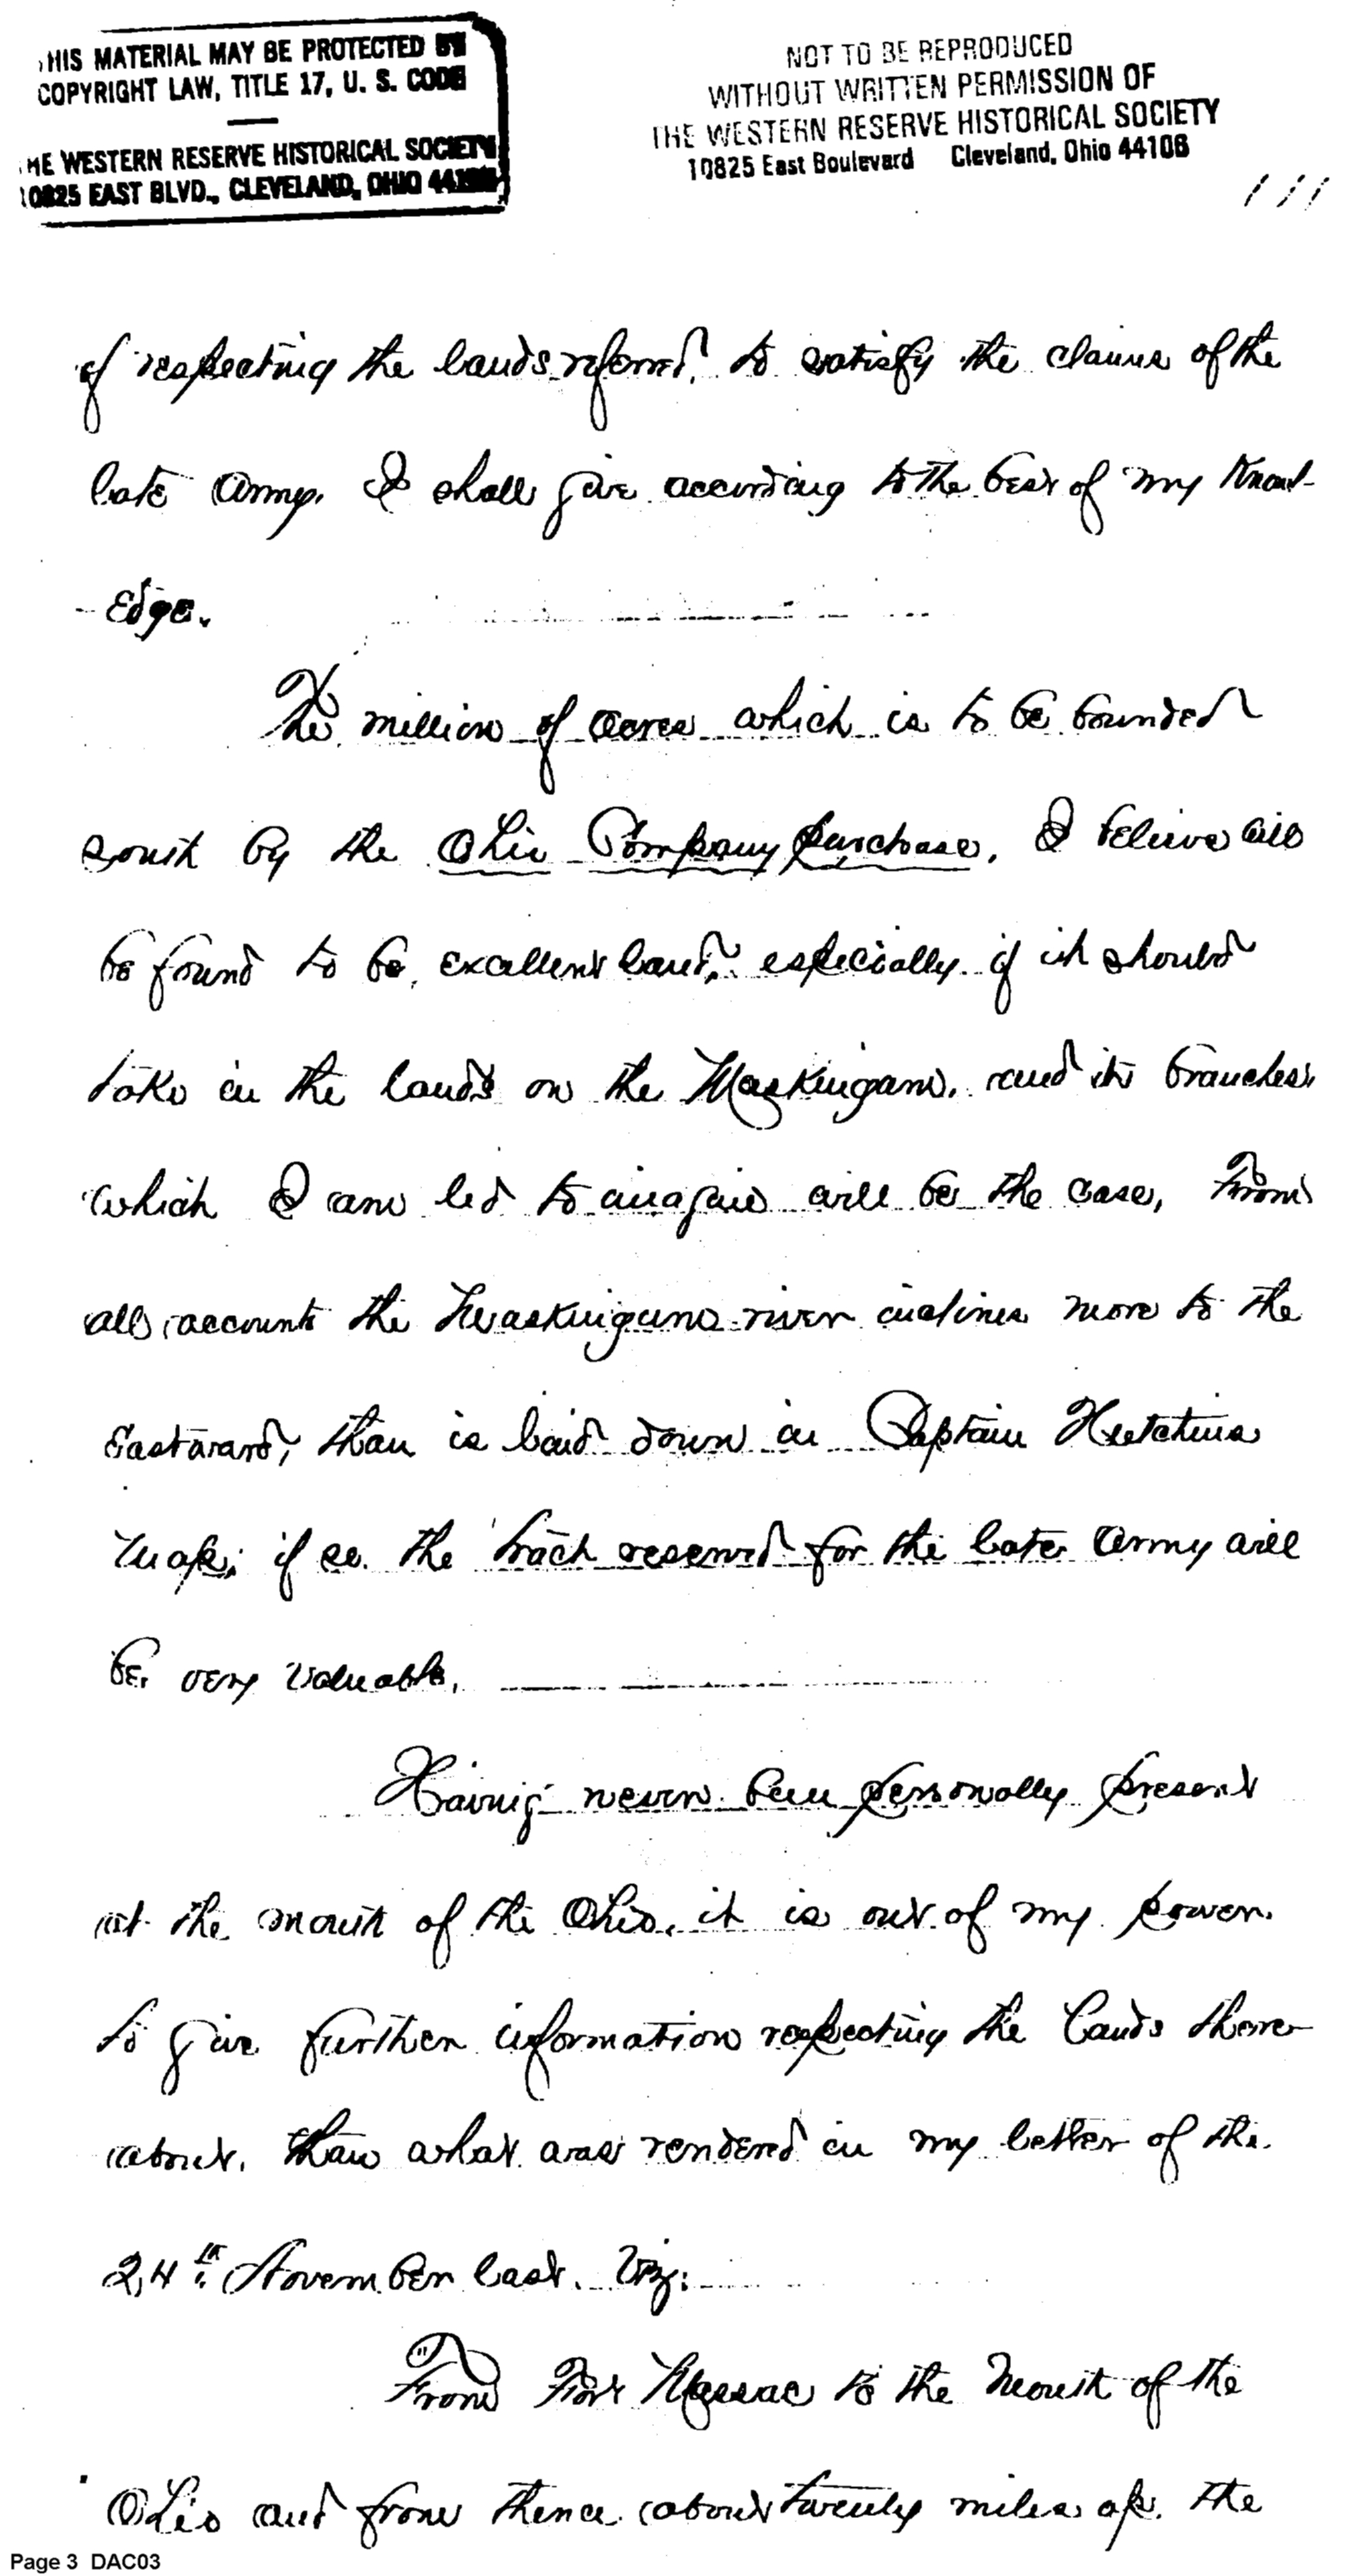 THIS MATERIAL MAY BE PROTECTED BY
COPYRIGHT LAW, TITLE 17, U. S. CODE
THE WESTERN RESERVE HISTORICAL SOCIETY
10825 EAST BLVD., CLEVELAND, OHIO 44106
NOT TO BE REPRODUCED
WITHOUT WRITTEN PERMISSION OF
THE WESTERN RESERVE HISTORICAL SOCIETY
10825 East Boulevard Cleveland, Ohio 44106
111
of respecting the lands referred, to satisfy the claims of the
late Army. I shall give according to the best of my Knowl-
-edge.
The million of acres which is to be bounded
south by the Ohio Company purchase, I believe will
be found to be excellent land, especially if it should
take in the lands on the Muskingum, and its branches
which I am led to imagine will be the case, From
all accounts the Muskingum river inclines more to the
Eastward, than is laid down in Captain Hutchins
Map; if so the tract reserved for the late Army will
be very valuable.
Having never been personally present
at the mouth of the Ohio, it is out of my power
to give further information respecting the Lands there-
about, than what was rendered in my letter of the
24th. November last. Viz:
"From Fort Massac to the Mouth of the
Ohio and from thence about twenty miles up the
Page 3 DAC03